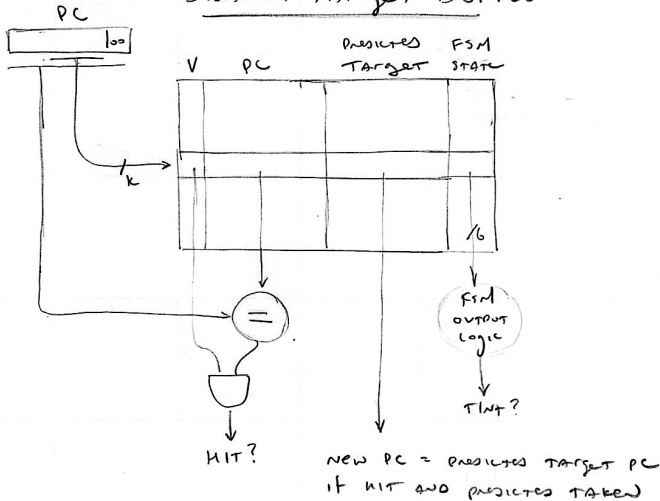 PC
100
V PC PREDICTED TARGET FSM STATE
k
/6
=
FSM
OUTPUT
LOGIC
T/NT?
HIT?
NEW PC = PREDICTED TARGET PC
IF HIT AND PREDICTED TAKEN